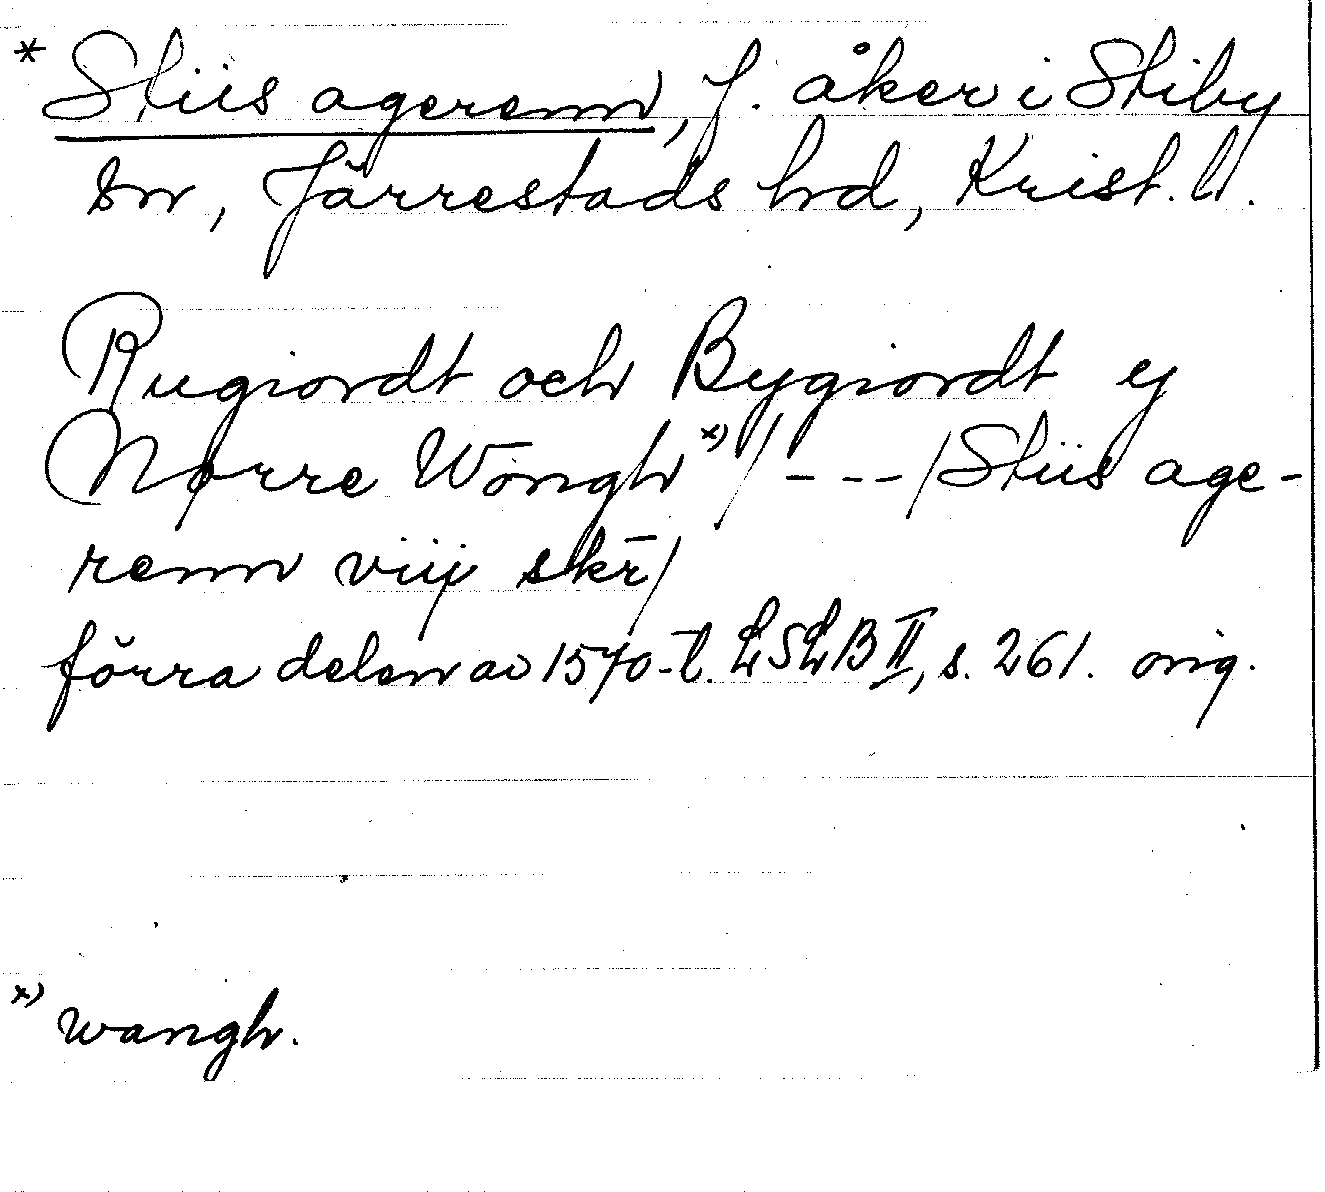 * Stiis agerenn, f. åker i Stiby
sn, Järrestads hd, Krist. l.
Rugiordt och Bygiordt ej
Nørre Wongh x) /---/ Stiis age-
renn viij skr̄ /
förra delen av 1570-t. LSLB II, s. 261. orig.
x) wangh.